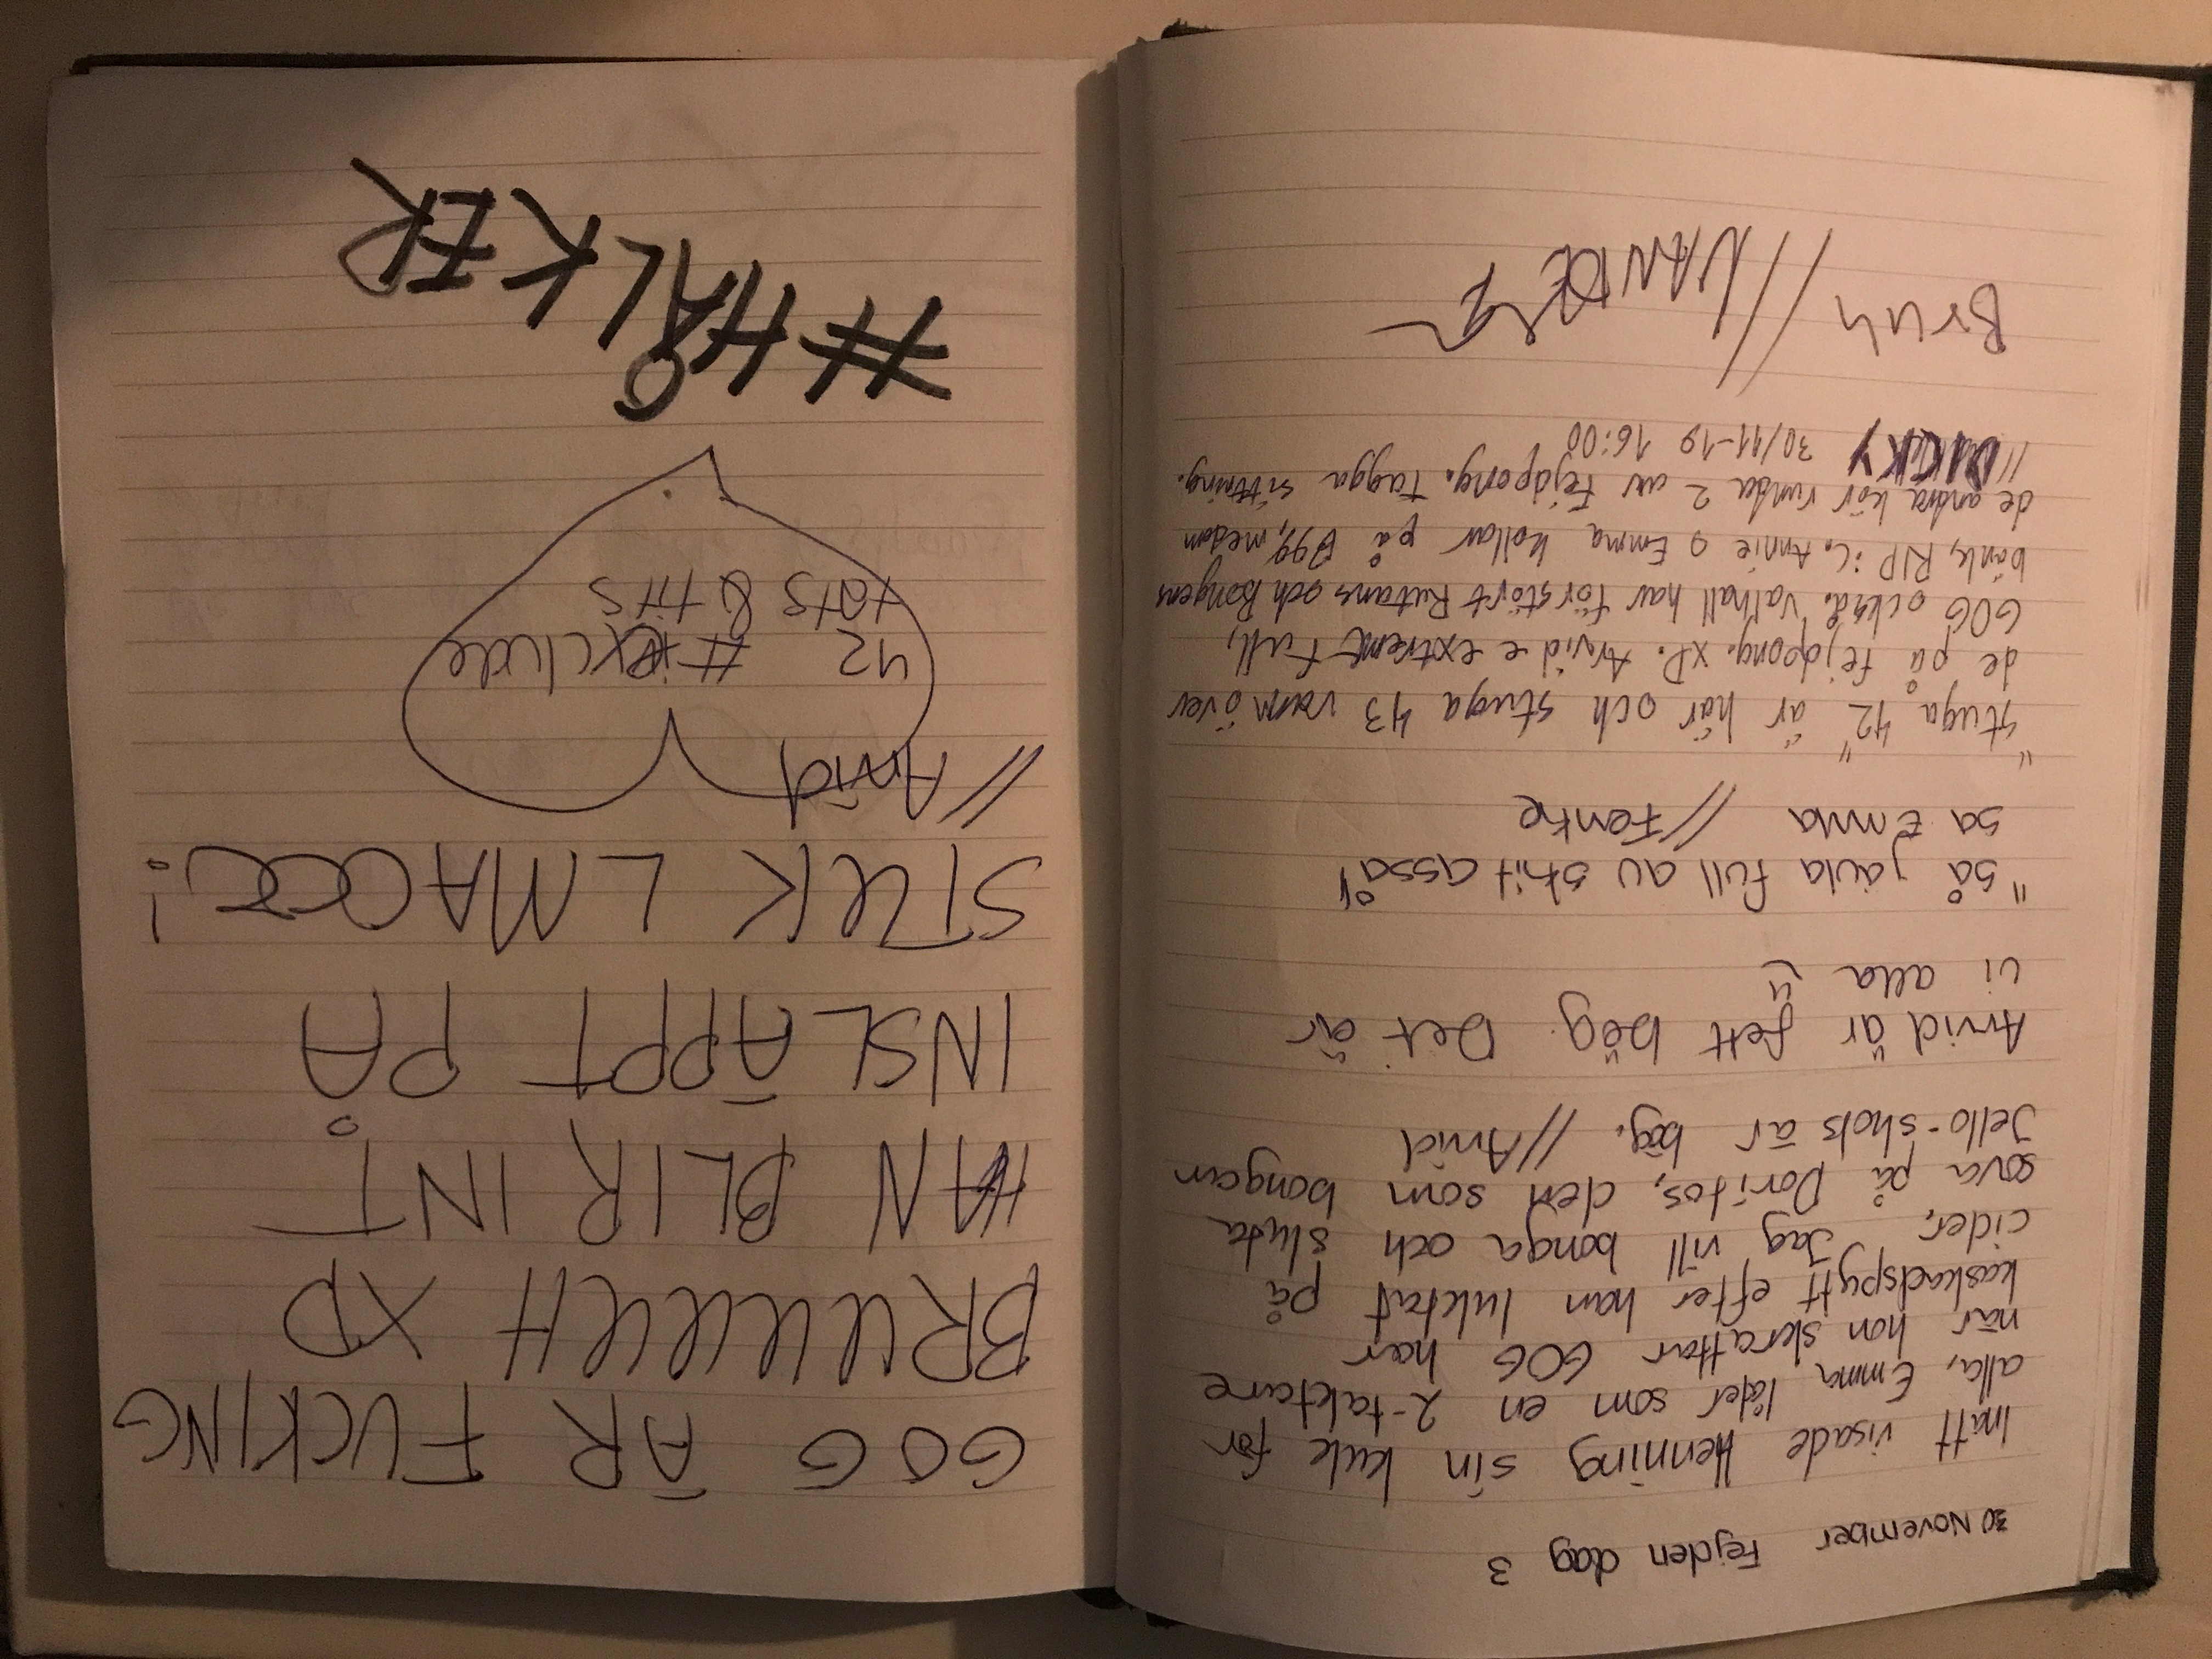 30 November Fejden dag 3
Inatt visade Henning sin kuk för
alla, Emma låter som en 2-taktare
när hon skrattar GOG har
kaskadspytt efter han luktat på
cider, Jag vill bonga och sluta
sova på Doritos, den som bongar
Jello-shots är bög. //Arvid
Arvid är fett bög. Det är
vi alla ü
"så jävla full av skit asså"
sa Emma //Femke
"stuga 42" är här och stuga 43 vann över
de på fejdpong. XD. Arvid e extremt full,
GOG också. Valhall har förstört Rutans och Bongens
bänk, RIP :(. Annie o Emma kollar på B99, medan
de andra kör runda 2 av Fejdpong. Tagga sittning.
// DICKY 30/11-19 16:00
Bruh //
GOG ÄR FUCKING
BRUUUUH XD
HAN BLIR INT
INSLÄPPT PÅ
STUK LMAOOO!
//Arvid
42 #exclude
tats & tits
#HÅLKER